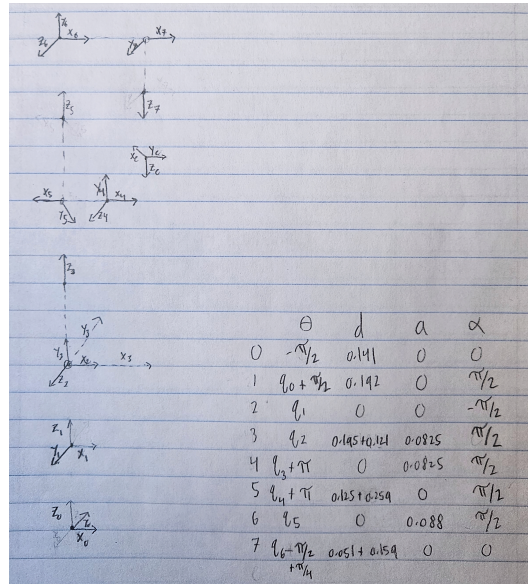 Z6
X6
X7
Z6
Y7
Z5
Z7
Xe
Ye
Ze
X5
Y4
X4
Y5
Z4
Z3
Y3
Y2
X2
X3
Z2
Z1
Y1
X1
Z0
X0
θ d a α
0 -π/2 0.141 0 0
1 q0 + π/2 0.192 0 π/2
2 q1 0 0 -π/2
3 q2 0.195+0.121 0.0825 π/2
4 q3 + π 0 0.0825 π/2
5 q4 + π 0.125+0.259 0 π/2
6 q5 0 0.088 π/2
7 q6 - π/2 0.051 + 0.159 0 0
+π/4